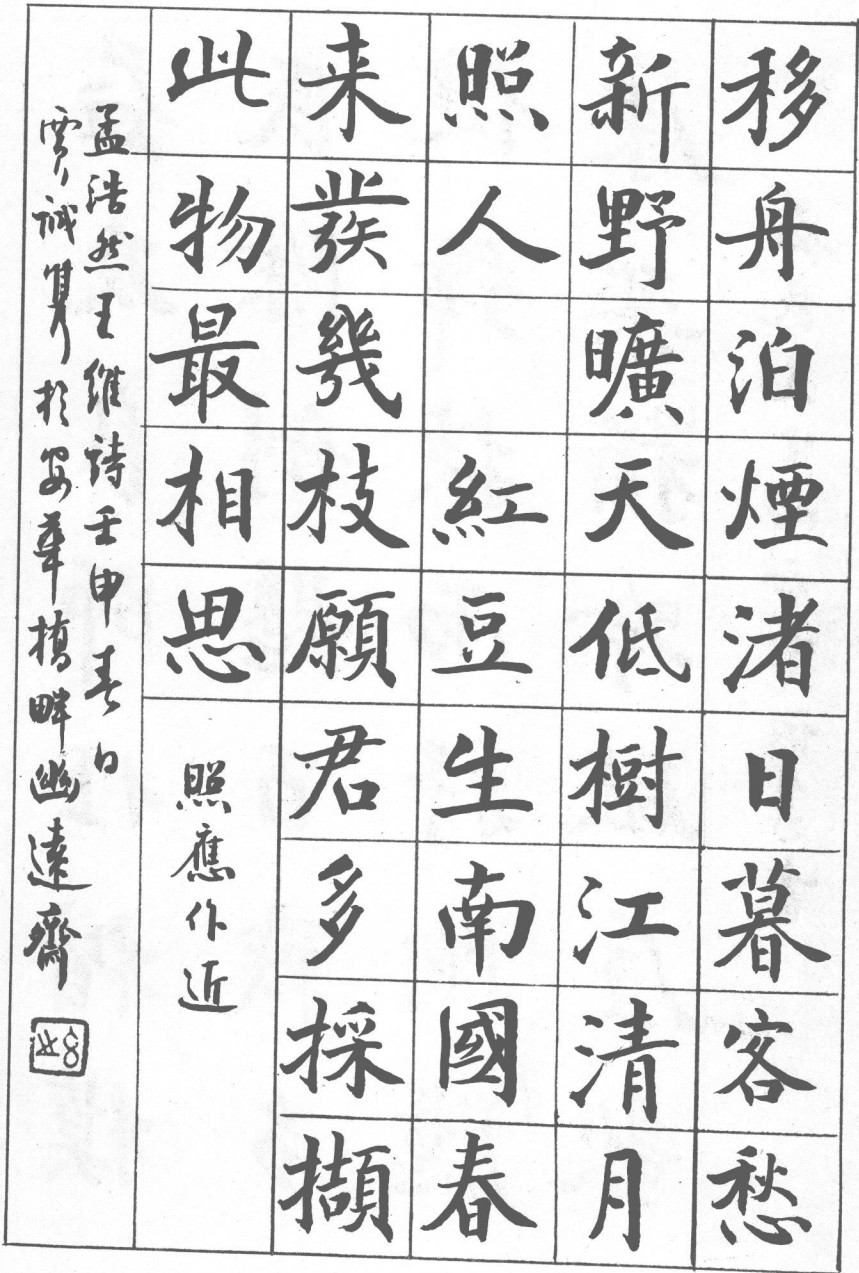 移舟泊煙渚日暮客愁
新野曠天低樹江清月
照人 紅豆生南國春
来發幾枝願君多採擷
此物最相思
照應作近
孟浩然王維詩壬申春日
賈誠隽於安華橋畔幽遠齋